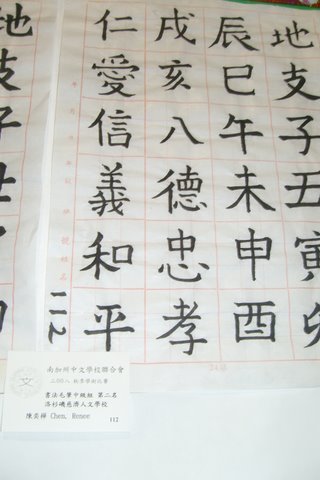 地支子丑寅卯
辰巳午未申酉
戌亥八德忠孝
仁愛信義和平
112
地支子
南加州中文學校聯合會
二00八 秋季學術比賽
書法毛筆中級組 第二名
洛杉磯慈濟人文學校
陳奕樺 Chen, Renee
112
文